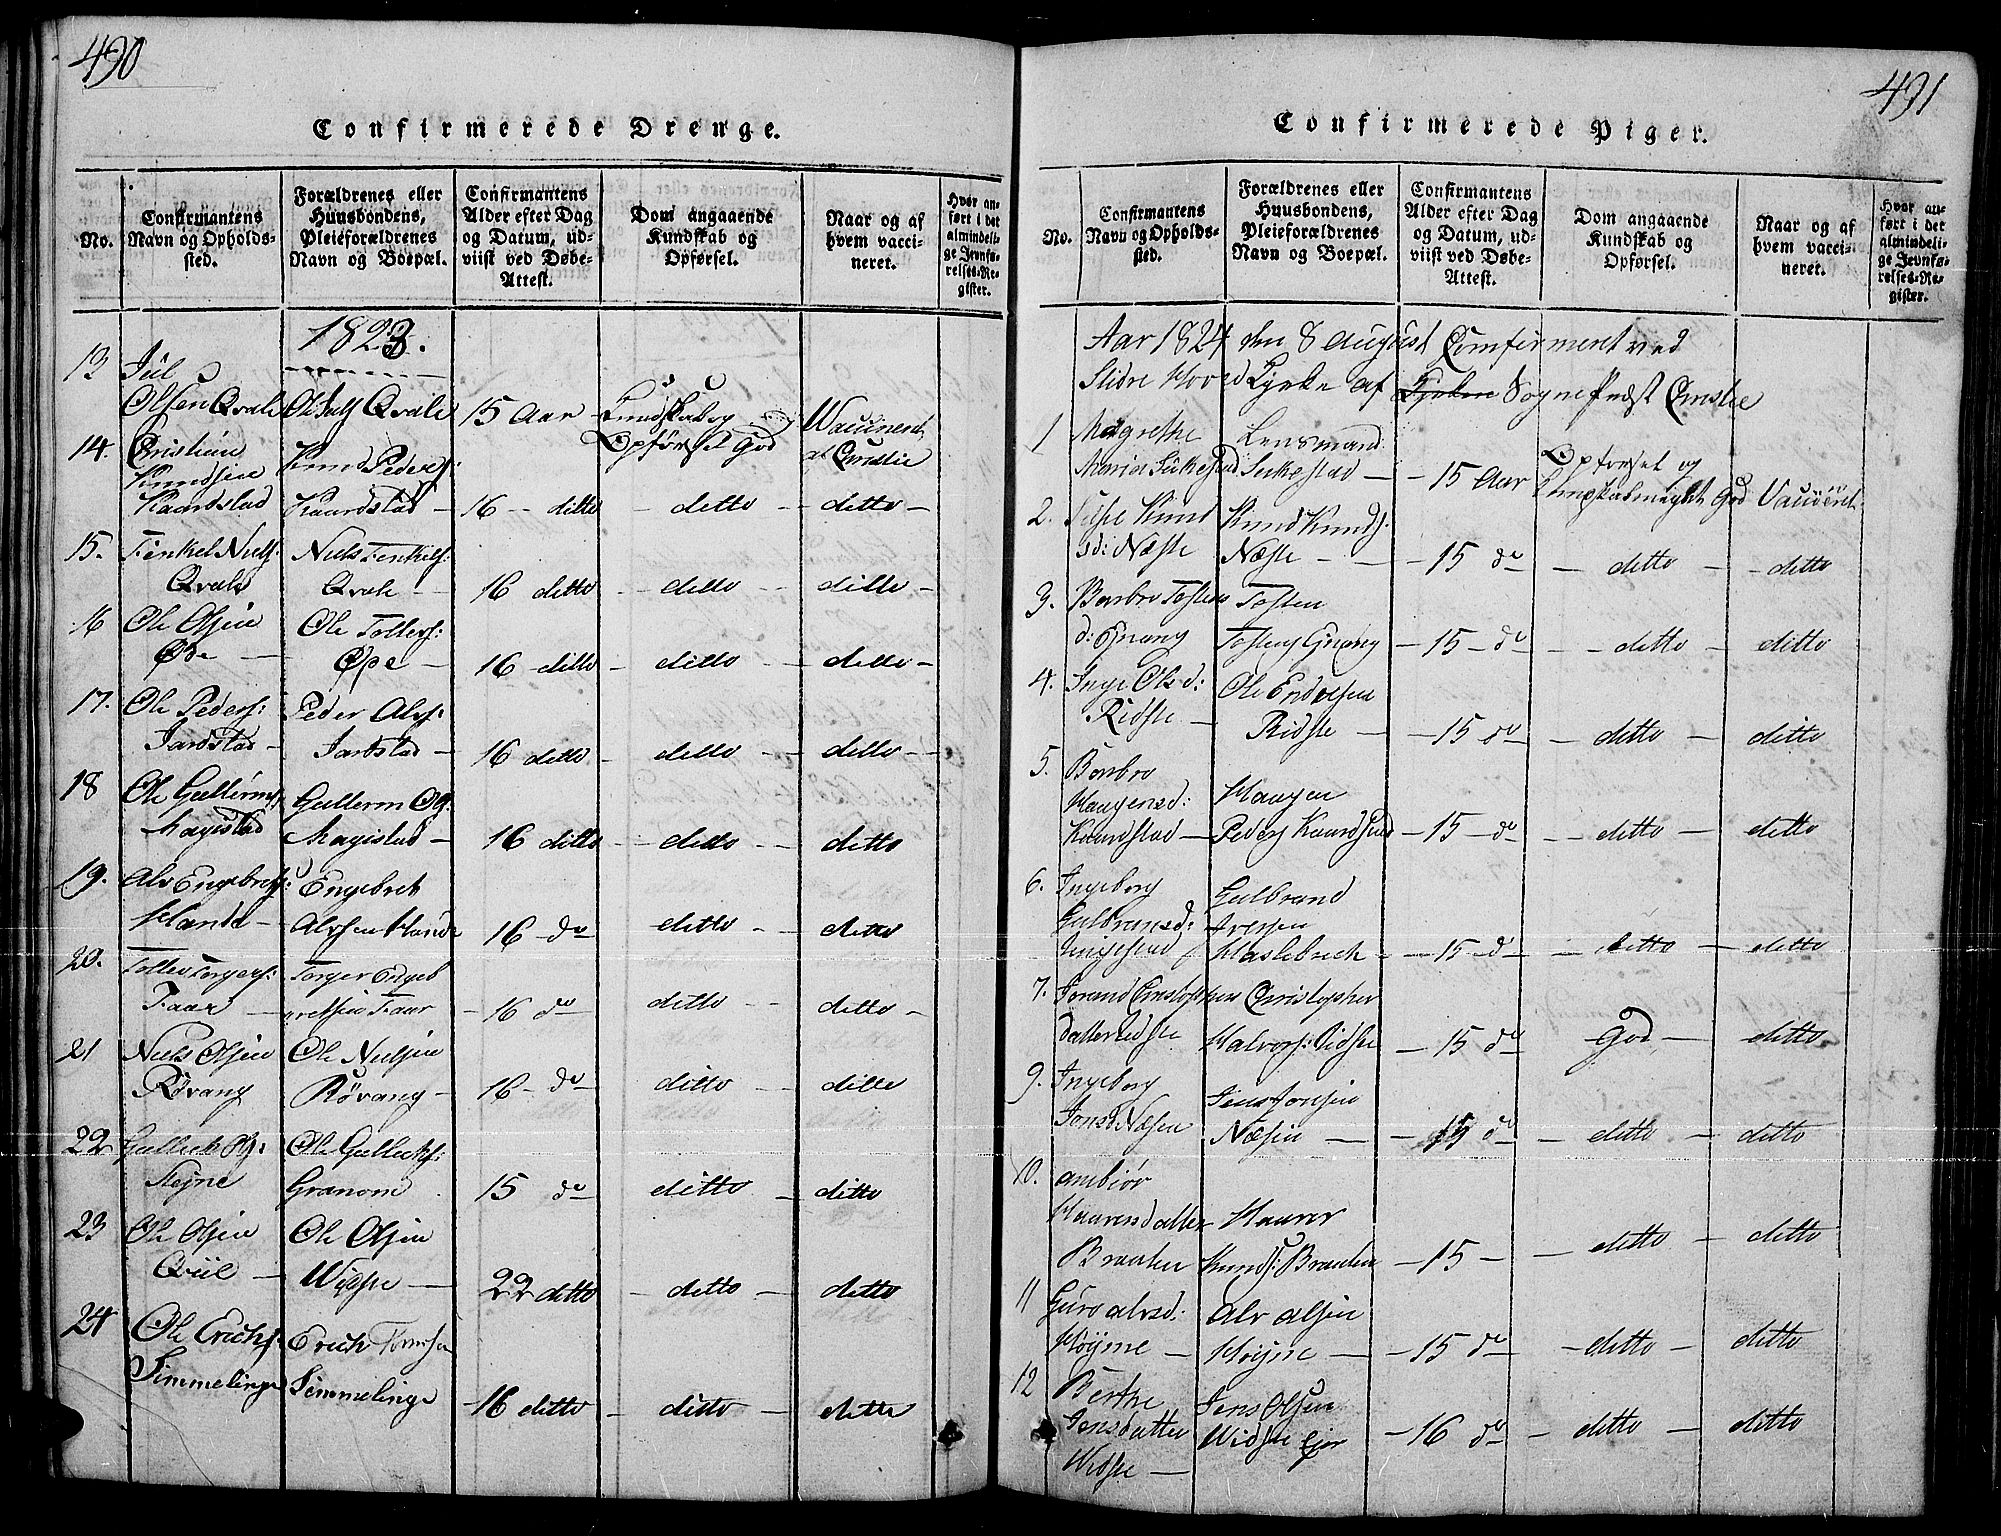 490
Confirmerede Drenge.
No.
Confirmantens Navn og Opholds-sted.
Forældrenes eller Huusbondens, Pleieforældrenes Navn og Boepæl.
Confirmantens Alder efter Dag og Datum, ud-viist ved Døbe-Attest.
Dom angaaende Kundskab og Opførsel.
Naar og af hvem vacci-neret.
Hvor an-ført i det almindeli-ge Jevnfø-relses-Re-gister.
1823.
13 Jul Olsen Qvale Ole Qvale 15 Aar Kundskab og Opførsel God Vaccineret af Christie
14. Cristian Knudsen Kaardstad Knud Peders: Kaardstad 16 ditto ditto ditto
15. Tinkel Niels: Qvale Niels Tinkels: Qvale 16 ditto ditto ditto
16 Ole Olsen Øpe Ole Tollefs: Øpe 16 ditto ditto ditto
17. Ole Peders: Jardstad Peder Alvs: Jardstad 16 ditto ditto ditto
18 Ole Gulterms: Magistad Gullerm Ols: Magistad 16 ditto ditto ditto
19. Alv Engebrets: Hande Engebret Alvsen Hande 16 do ditto ditto
20. Tollev Torgers: Faar Torger Engebretsen Faar 16 do ditto ditto
21 Niels Olsen Røvang Ole Nielsen Røvang 16 do ditto ditto
22 Gullick Ols: Ole Gullicks: Granom 15 do ditto ditto
23 Ole Olsen Ole Olsen 22 ditto ditto ditto
24 Ole Erichs: Simmelinge Erich Simmelinge 16 ditto ditto ditto
491
Confirmerede Piger.
No.
Confirmantens Navn og Opholds-sted.
Forældrenes eller Huusbondens, Pleieforældrenes Navn og Boepæl.
Confirmantens Alder efter Dag og Datum, ud-viist ved Døbe-Attest.
Dom angaaende Kundskab og Opførsel.
Naar og af hvem vacci-neret.
Hvor an-ført i det almindeli-ge Jevnfø-relses-Re-gister.
Aar 1824 den 8 August Confirmeret ved
Slidre Hoved Kyrke af Sogne Præst Christie
1 Magrethe Maria Lensmand 15 Aar Opførsel og God Vaccineret
2. Knudsd: Næste Knud Knuds: Næste 15 do ditto ditto
3. Barbro Tostensd: Gnang Tosten Tostens Gnang 15 do ditto ditto
4. Inge Olsd: Ridste Ole Endresen Ridste 15 do ditto ditto
5. Barbro Haagensd: Kaardstad Haagen Peders Kaardstad 15 do ditto ditto
6. Ingeborg Gulbransd: Gulbrand Iversen Haslebrech 15 do ditto ditto
7. Jorand Christophersdatter Ridste Christopher Halvors: Ridste 15 do God ditto
9. Ingeborg Jensd Næsen Jens Jonsen Næsen 15 do ditto ditto
10. Ambiør Haaversdatter Braaten Haaver Knuds: Braaten 15 ditto ditto
11 Guro Alvsd: Høyme Alv Alsen Høyme 15 do ditto ditto
12 Berthe Jensdatter Widste Jens Olsen Widste Eier 16 do ditto ditto